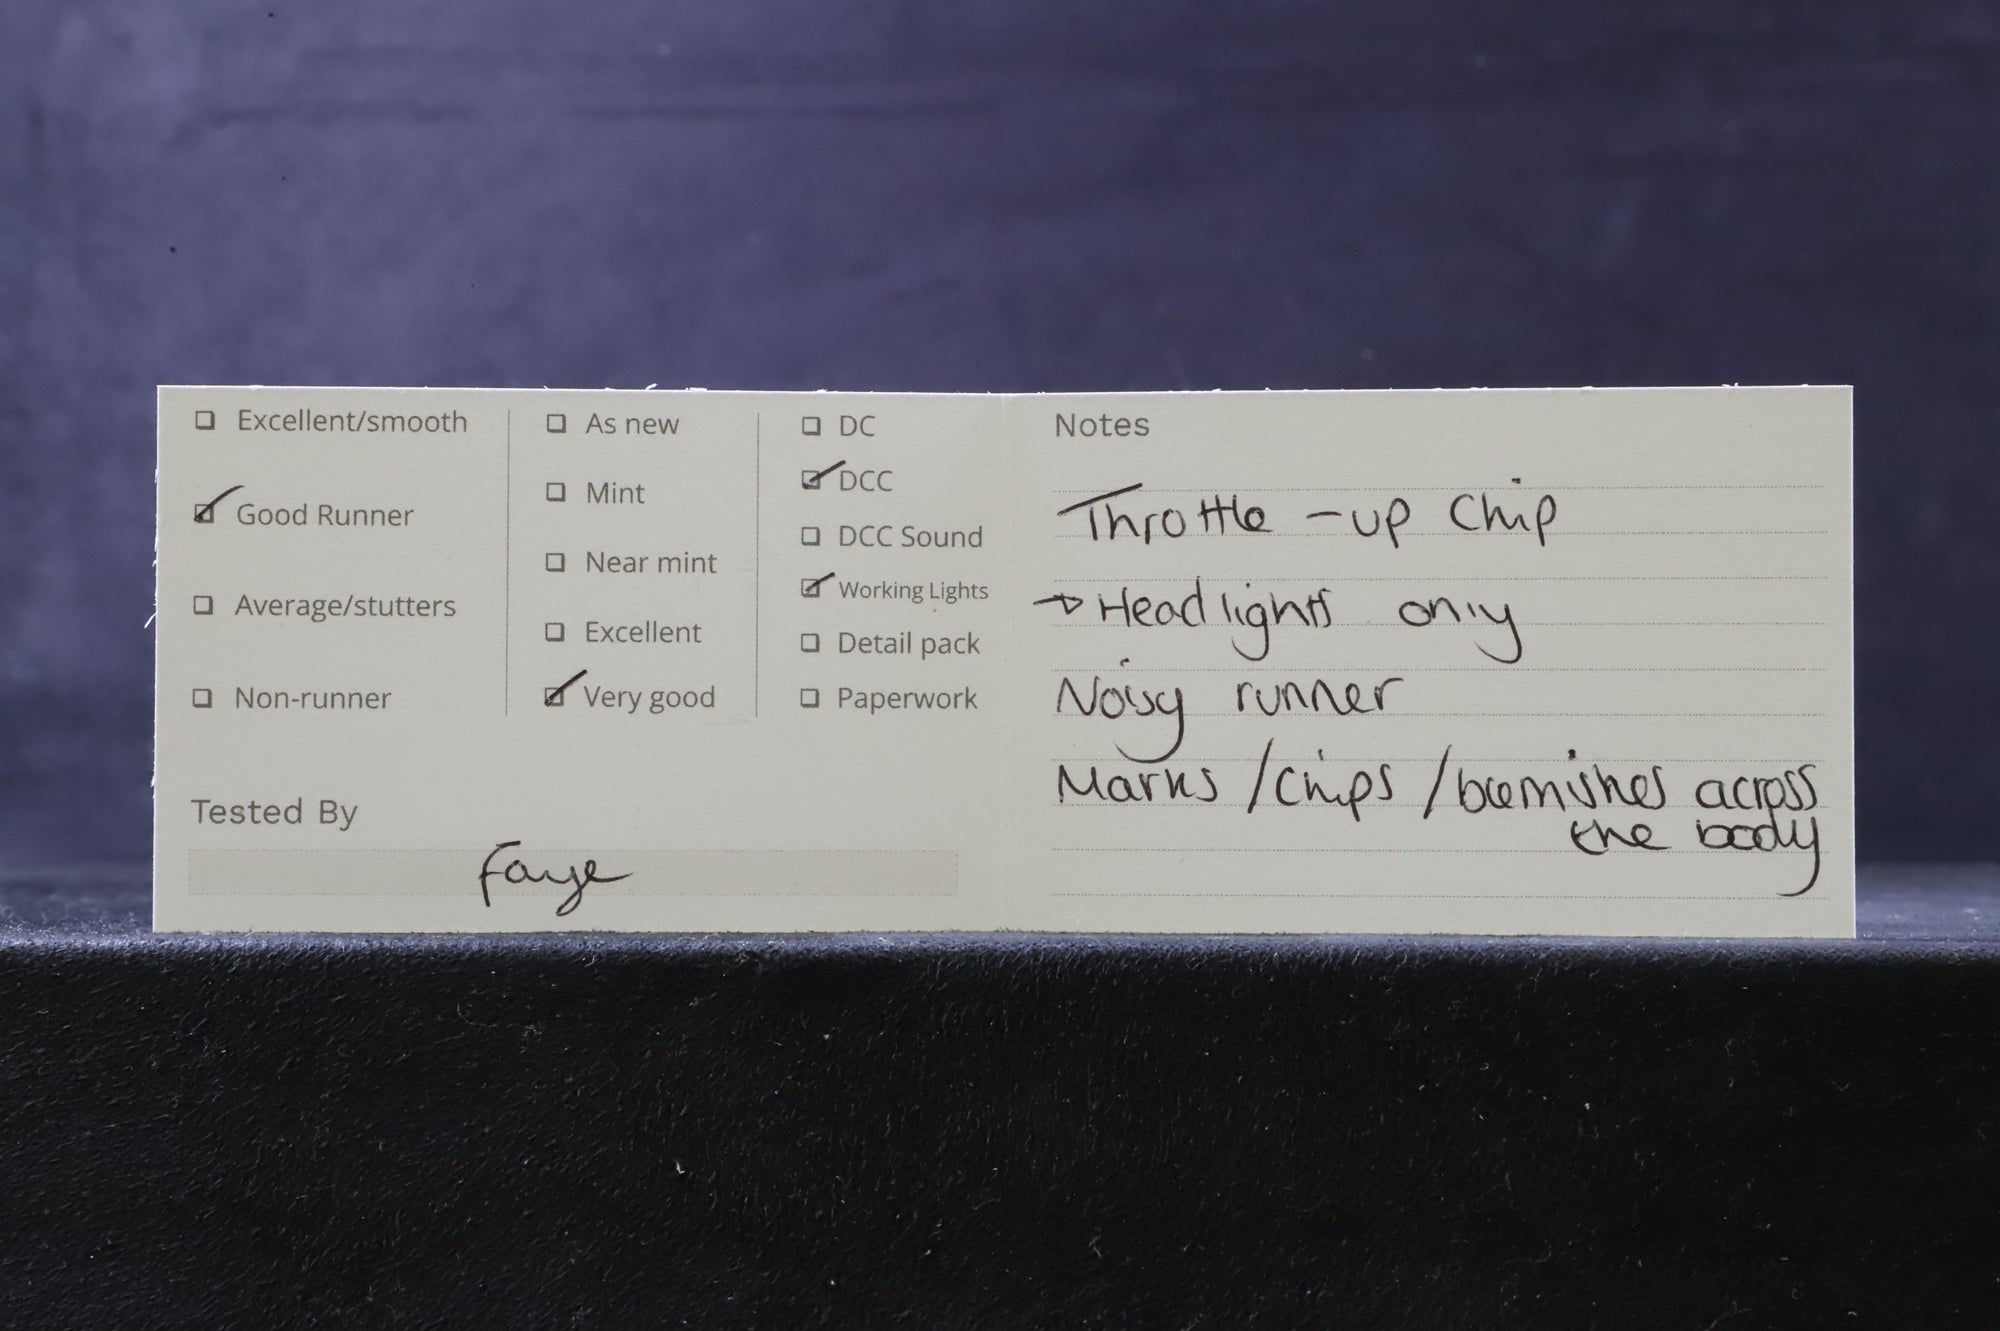 Excellent/smooth
Good Runner
Average/stutters
Non-runner
As new
Mint
Near mint
Excellent
Very good
DC
DCC
DCC Sound
Working Lights
Detail pack
Paperwork
Tested By
Faye
Notes
Throttle-up Chip
→ Headlights only
Noisy runner
Marks / chips / blemishes across
the body